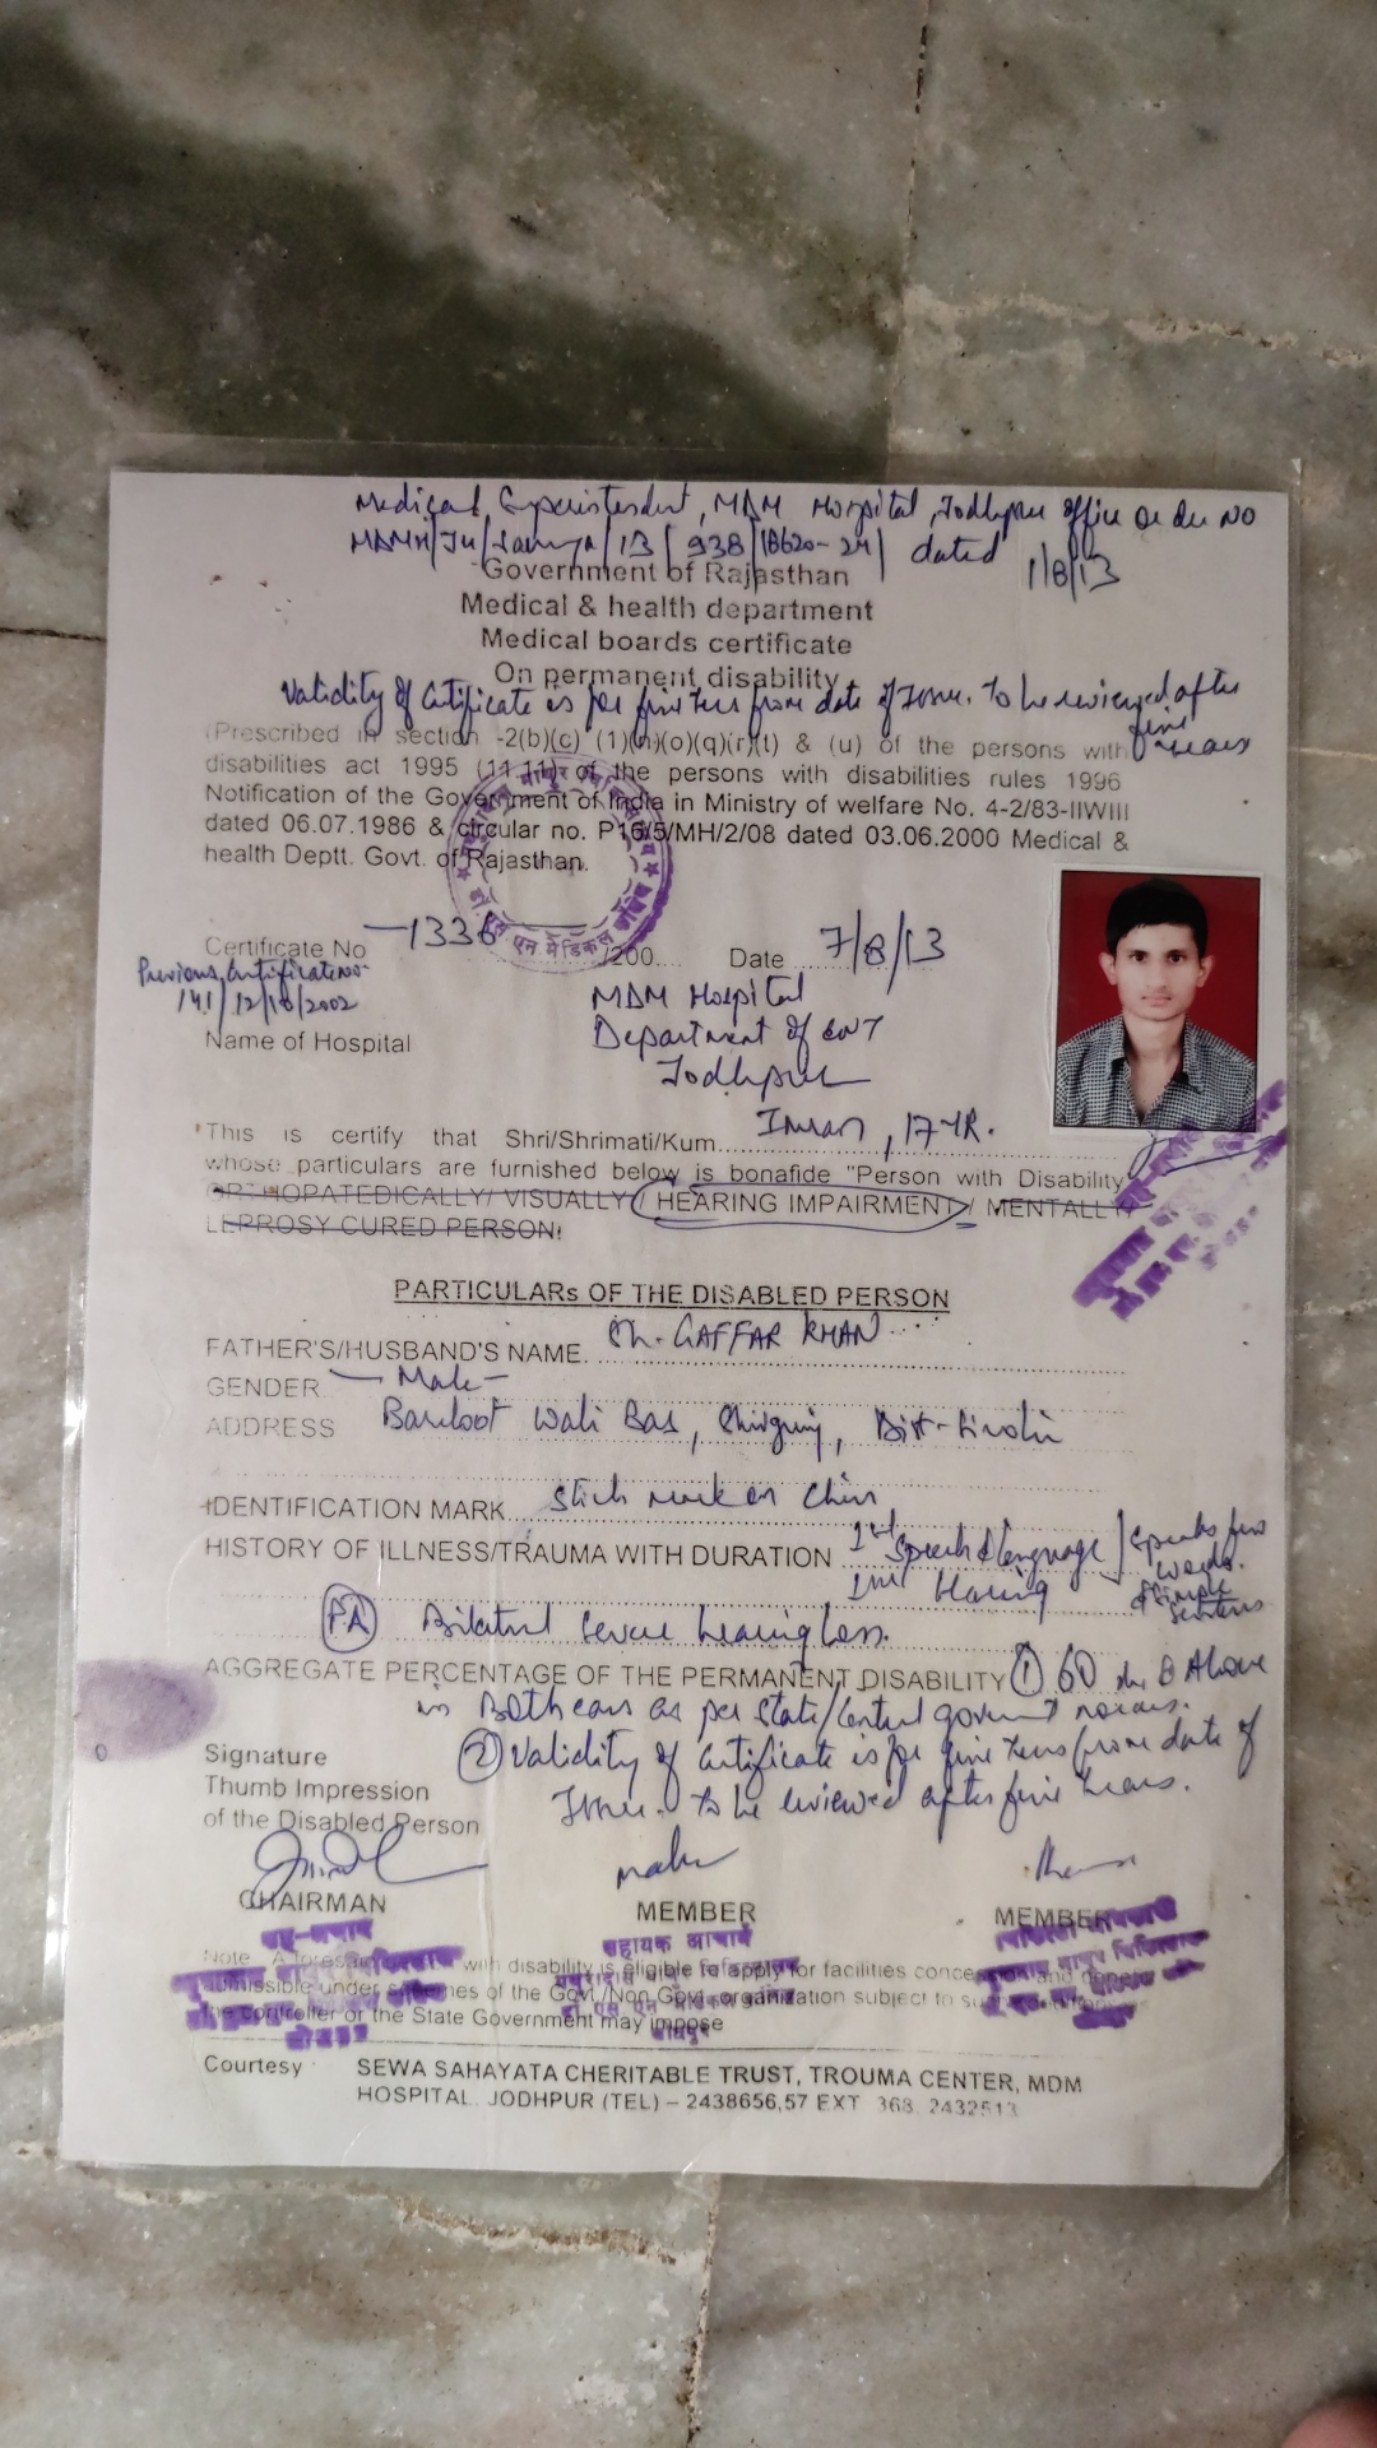 Medical Superintendent, MDM Hospital, Jodhpur office order NO
MDMH/Ju/ /13/938/18620-24/ dated 1/8/13
Government of Rajasthan
Medical & health department
Medical boards certificate
On permanent disability
Validity of Certificate is for five years from date of Issue. To be reviewed after
five years
(Prescribed in section -2(b)(c) (1)(n)(o)(q)(r)(t) & (u) of the persons with
disabilities act 1995 (11.11) of the persons with disabilities rules 1996
Notification of the Government of India in Ministry of welfare No. 4-2/83-IIWIII
dated 06.07.1986 & circular no. P16/5/MH/2/08 dated 03.06.2000 Medical &
health Deptt. Govt. of Rajasthan.
एन मेडिकल
Certificate No -1336 /200.... Date 7/8/13
Previous Certificate no-
141/12/10/2002
MDM Hospital
Name of Hospital Department of ENT
Jodhpur
This is certify that Shri/Shrimati/Kum. Imran, 17 YR.
whose particulars are furnished below is bonafide "Person with Disability
ORTHOPATEDICALLY/ VISUALLY / HEARING IMPAIRMENT / MENTALLY/
LEPROSY CURED PERSON!
PARTICULARs OF THE DISABLED PERSON
FATHER'S/HUSBAND'S NAME. Sh. GAFFAR KHAN
GENDER - Male -
ADDRESS Barloot Wali Bas, Shivgunj, Dist-Sirohi
IDENTIFICATION MARK Stich mark on Chin
HISTORY OF ILLNESS/TRAUMA WITH DURATION Speech & language / Speaks few
Hearing words. & simple
sentens
PA Bilateral severe hearing loss.
AGGREGATE PERCENTAGE OF THE PERMANENT DISABILITY (1) 60 db & Above
in Both ears as per State/Central government norms.
(2) Validity of Certificate is for five years from date of
Issue. To be reviewed after five years.
Signature
Thumb Impression
of the Disabled Person
CHAIRMAN MEMBER MEMBER
सह-आचार्य सहायक आचार्य
Note. Aforesaid with disability is eligible to apply for facilities concession and
admissible under schemes of the Govt./Non Govt. organization subject to
the controller or the State Government may impose
जोधपुर
Courtesy SEWA SAHAYATA CHERITABLE TRUST, TROUMA CENTER, MDM
HOSPITAL. JODHPUR (TEL) – 2438656,57 EXT 368, 2432513